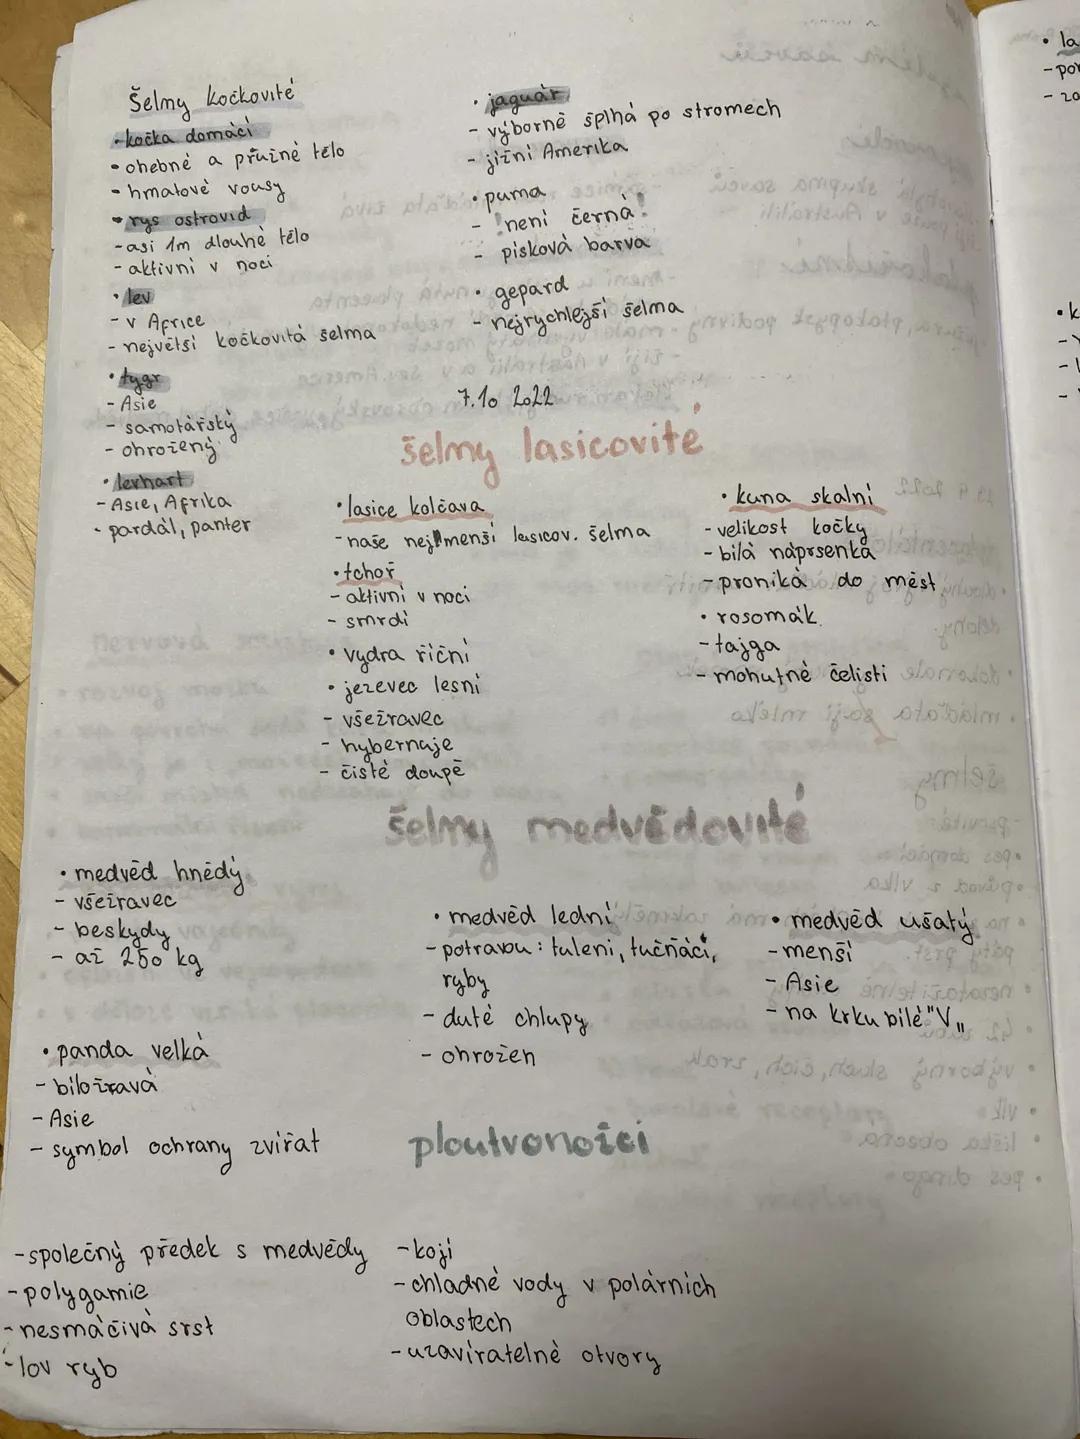 Šelmy kočkovité
• kočka domácí
• ohebné a pružné tělo
- hmatové vousy
• rys ostrovid
- asi 1m dlouhé tělo
- aktivní v noci
• lev
- v Africe
- největší kočkovitá šelma
• tygr
- Asie
- samotářský
- ohrožený
• levhart
- Asie, Afrika
- pardál, panter
• jaguár
- výborně šplhá po stromech
- jižní Amerika
• puma
- !není černá!
- písková barva
• gepard
- nejrychlejší šelma
7.10 2022
šelmy lasicovité
• lasice kolčava
- naše nejmenší lasicov. šelma
• tchoř
- aktivní v noci
- smrdí
• vydra říční
• jezevec lesní
- všežravec
- hybernuje
- čisté doupě
• kuna skalní
- velikost kočky
- bílá náprsenka
- proniká do měst
• rosomák
- tajga
- mohutné čelisti
šelmy medvědovité
• medvěd hnědý
- všežravec
- beskydy
- až 250 kg
• panda velká
- biložravá
- Asie
- symbol ochrany zvířat
• medvěd lední
- potravou: tuleni, tučňáci,
ryby
- duté chlupy
- ohrožen
• medvěd ušatý
- menší
- Asie
- na krku bílé "V„
ploutvonožci
- společný předek s medvědy
- polygamie
- nesmáčivá srst
- lov ryb
- kojí
- chladné vody v polárních
oblastech
- uzavíratelné otvory